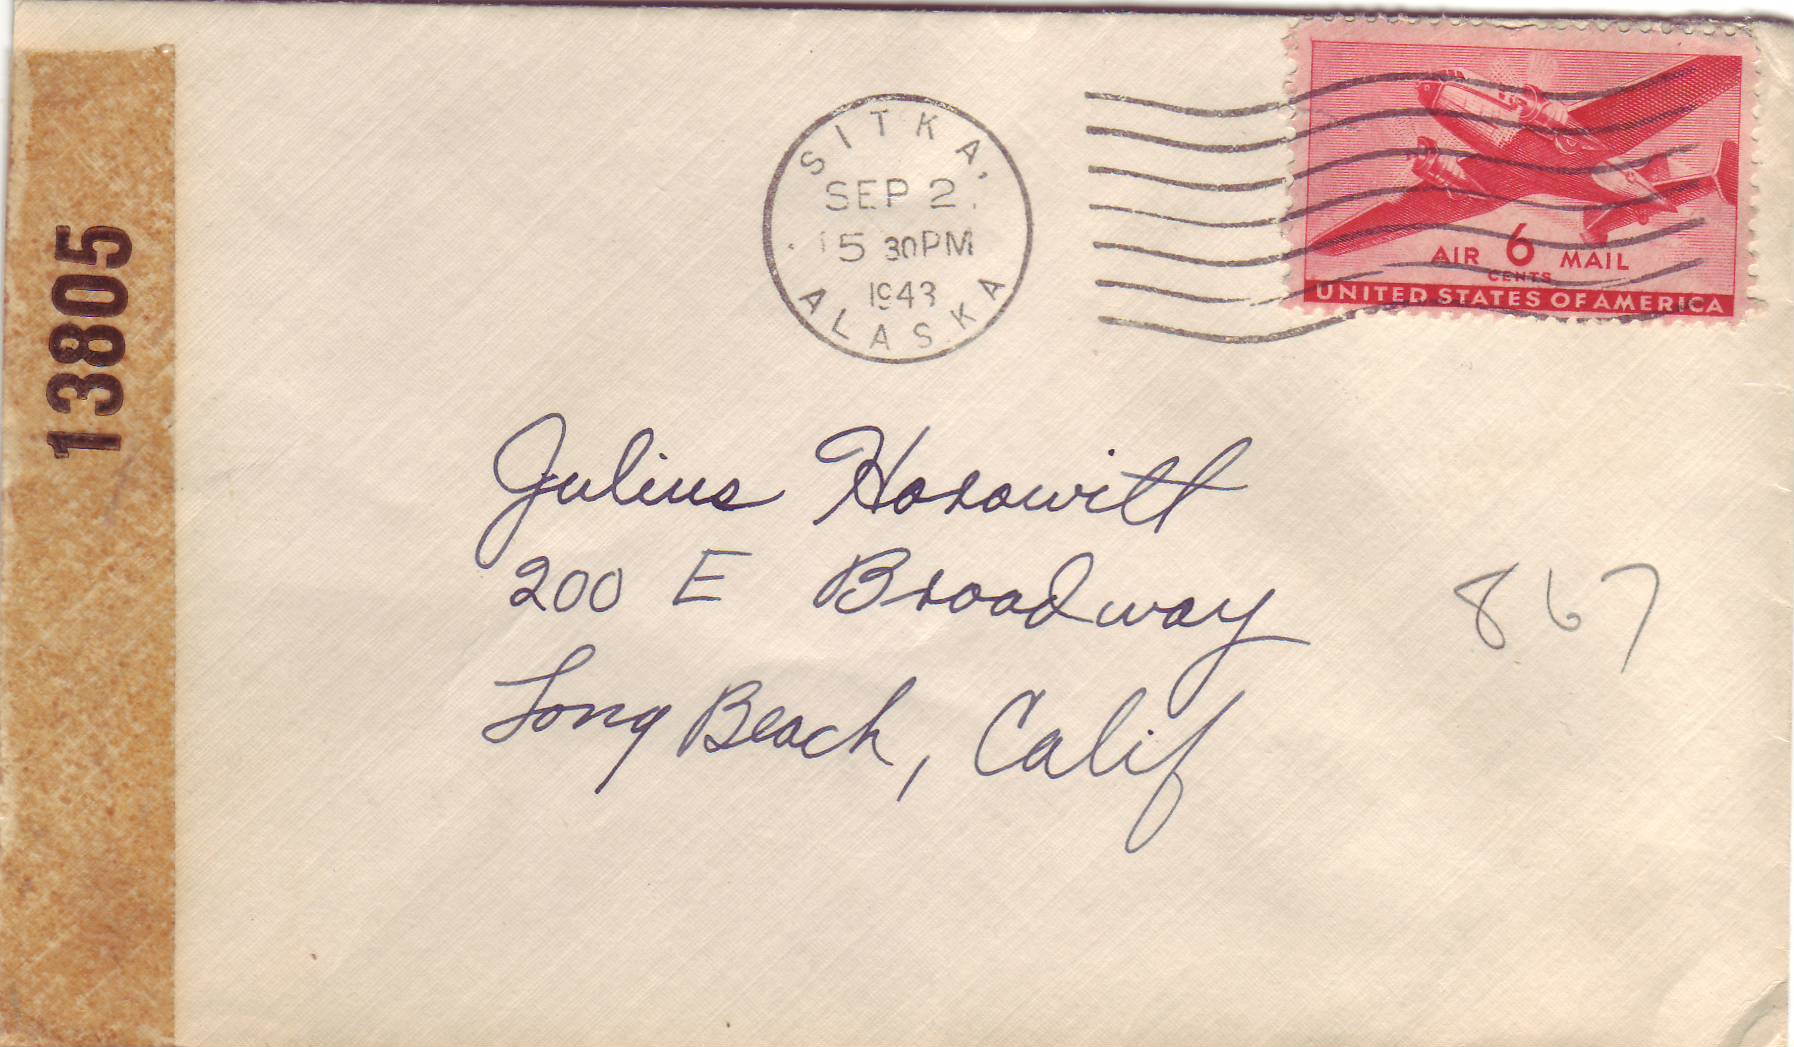 13805
SITKA,
SEP 2
5 30PM
1943
ALASKA
AIR 6 MAIL
CENTS
UNITED STATES OF AMERICA
Julius Horowitt
200 E Broadway
Long Beach, Calif
867